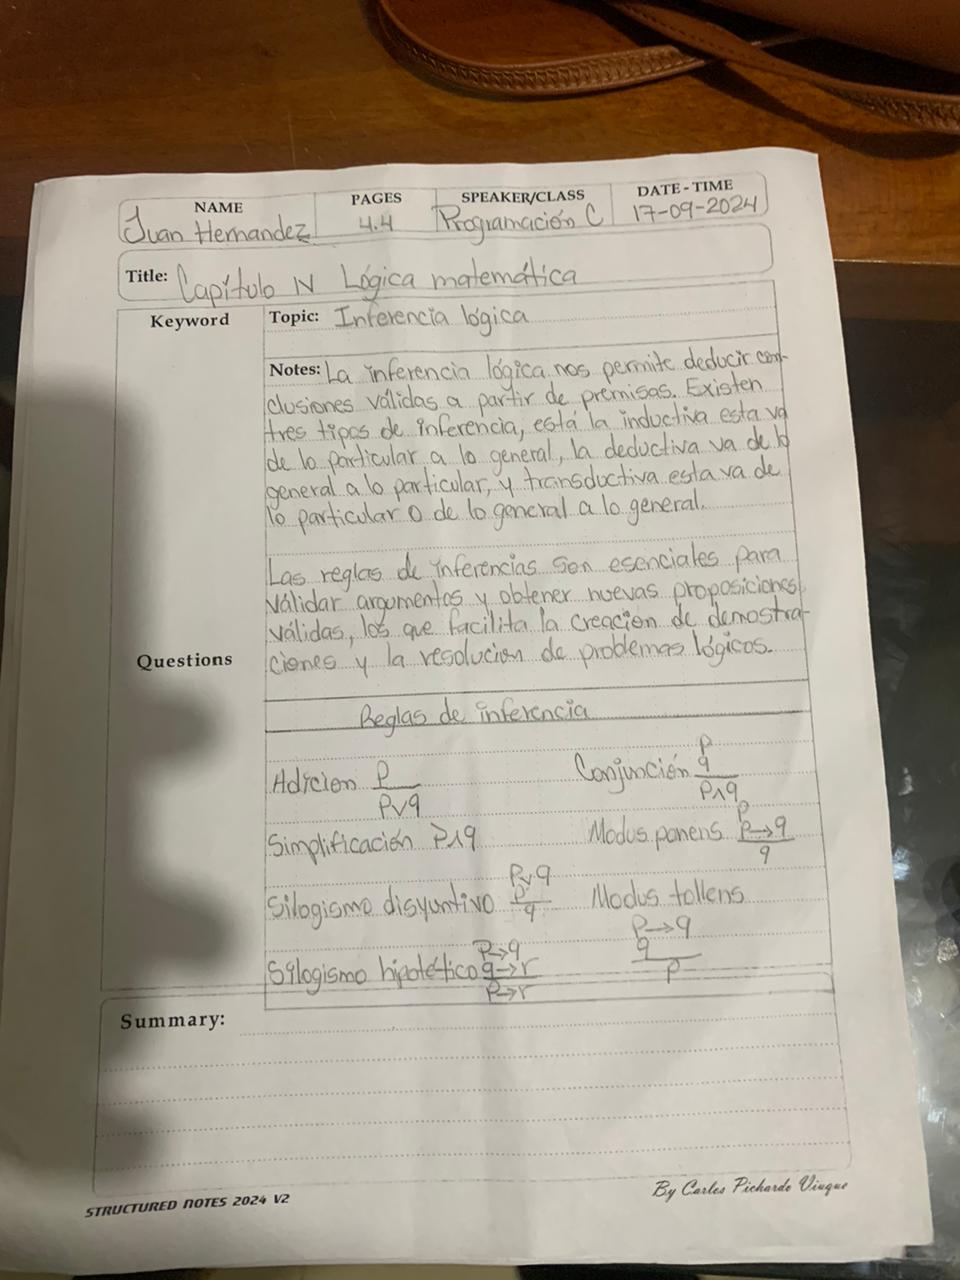 NAME
PAGES
SPEAKER/CLASS
DATE - TIME
Juan Hernandez
4.4
Programación C
17-09-2024
Title: Capítulo IV Lógica matemática
Keyword
Topic: Inferencia lógica
Notes: La inferencia lógica nos permite deducir con-
clusiones válidas a partir de premisas. Existen
tres tipos de inferencia, está la inductiva esta va
de lo particular a lo general, la deductiva va de lo
general a lo particular, y transductiva esta va de
lo particular o de lo general a lo general.
Las reglas de inferencias son esenciales para
válidar argumentos y obtener nuevas proposiciones
válidas, los que facilita la creación de demostra-
Questions
ciones y la resolucion de problemas lógicos.
Reglas de inferencia
Adicion P
P∨q
Conjunción P
q
P∧q
Simplificación P∧q
Modus ponens P
P→q
q
Silogismo disyuntivo P∨q
P'
q
Modus tollens
P→q
q
P
Silogismo hipotético P→q
q→r
P→r
Summary:
STRUCTURED NOTES 2024 V2
By Carlos Pichardo Viuque